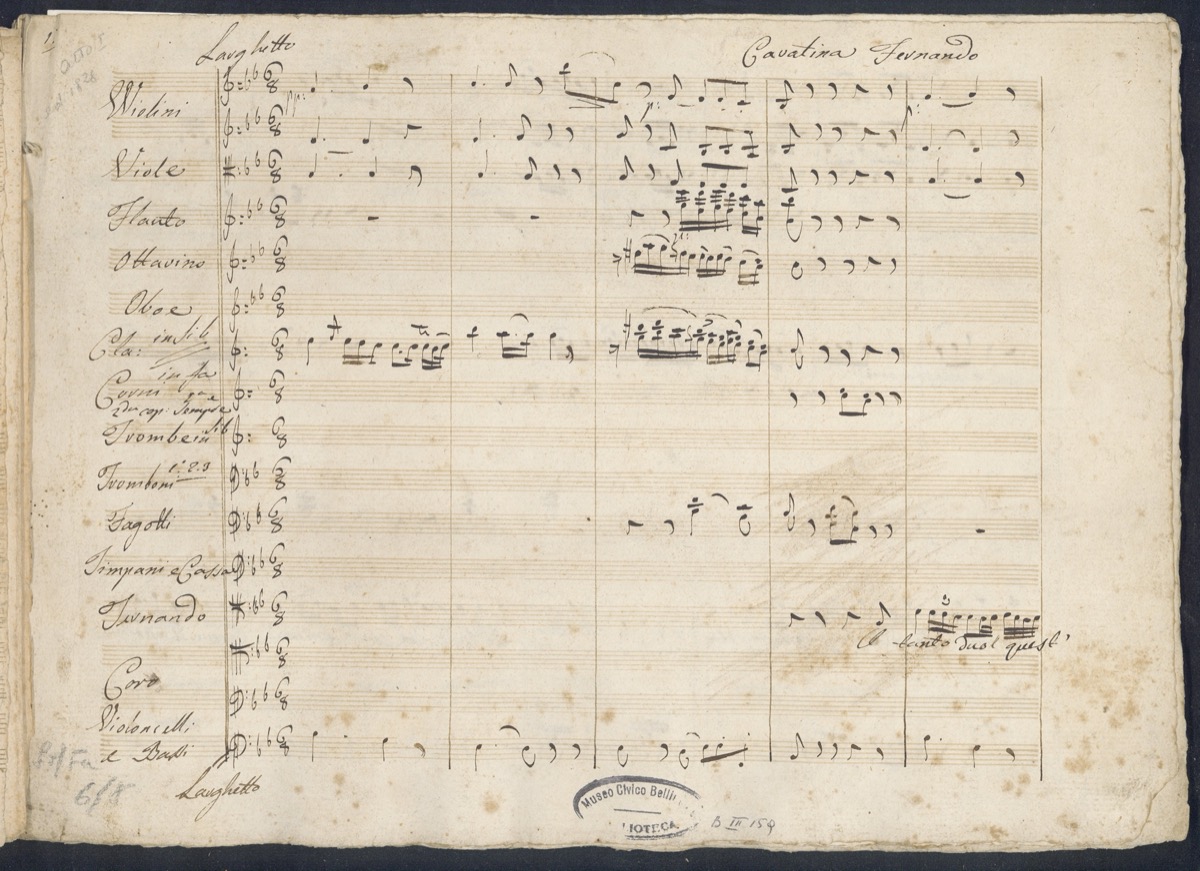 1
atto I
1828
Larghetto
Cavatina Fernando
Violini
pp:
p:
p:
Viole
Flauto
Ottavino
Oboe
Cla: in Sib
Corni in fa
Tempre
Trombe in Sib
Tromboni 1º 2. 3
Fagotti
Timpani e Cassa
Fernando
3
A tanto duol quest'
Coro
Violoncelli
e Bassi
Larghetto
6/8
Museo Civico Belli
LIOTECA
B III 159